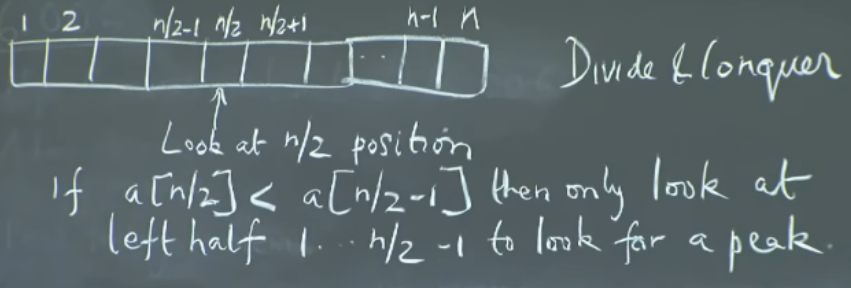 1 2 n/2-1 n/2 n/2+1 n-1 n
Divide & Conquer
Look at n/2 position
If a[n/2] < a[n/2-1] then only look at
left half 1...n/2-1 to look for a peak.